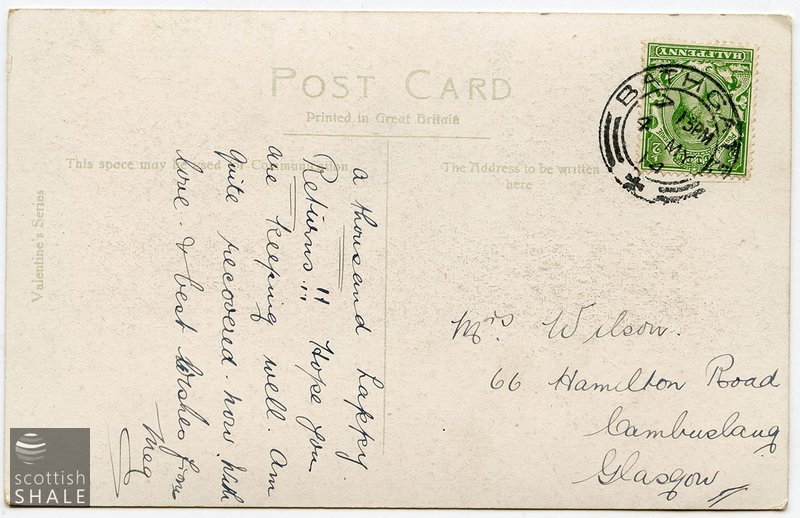 POST CARD
Printed in Great Britain
This space may be used for Communication
The Address to be written
here
Valentine's Series
HALFPENNY
BATHGATE
7 15PM
4 MY
14
a thousand happy
Returns!! Hope you
are keeping well. Am
quite recovered now. With
love & best wishes from
Meg
Mrs Wilson.
66 Hamilton Road
Cambuslang
Glasgow
scottish
SHALE